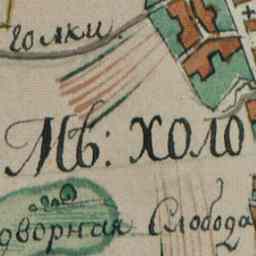 голки.
Мѣ: холо
дворная Слобода